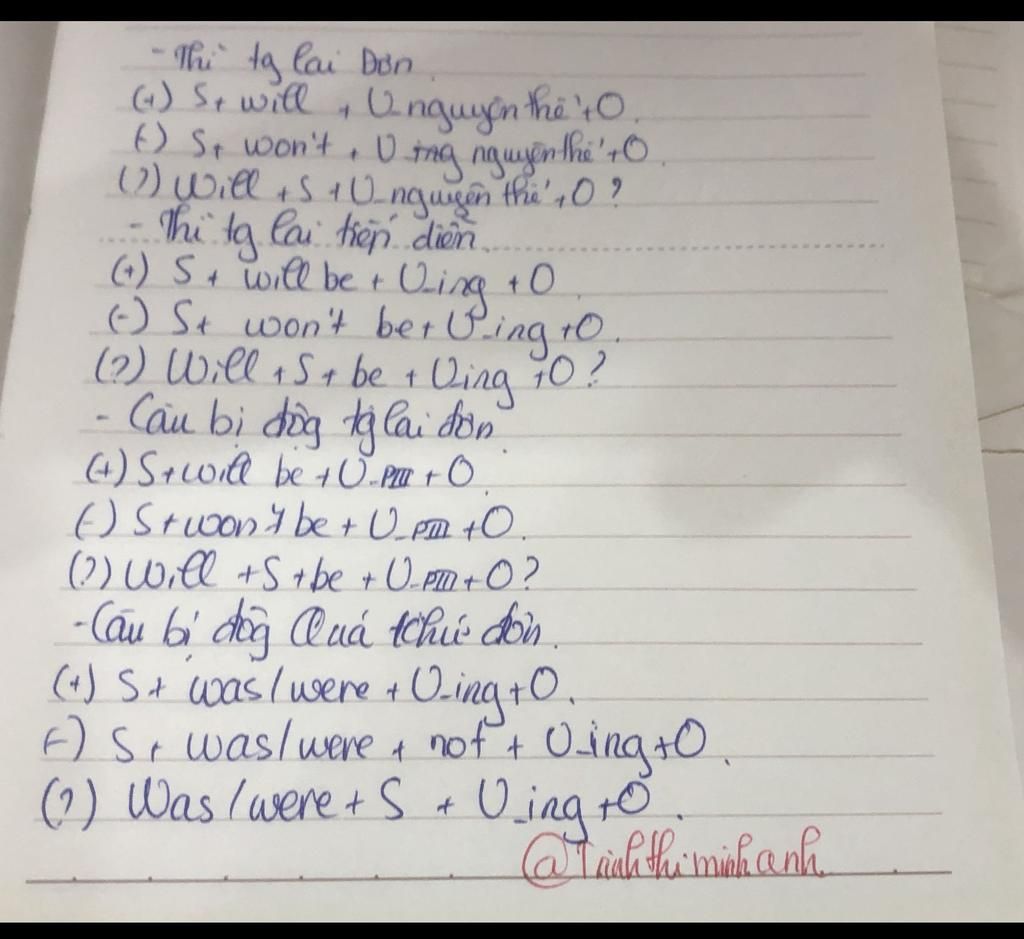 - Thì tg lai Đơn.
(+) S + will + V_nguyên thể + O.
(-) S + won't + V_ing nguyên thể + O.
(?) Will + S + V_nguyên thể + O?
- Thì tg lai tiếp diễn.
(+) S + will be + V_ing + O.
(-) S + won't be + V_ing + O.
(?) Will + S + be + V_ing + O?
- Câu bị độg tg lai đơn.
(+) S + will be + V_PIII + O.
(-) S + won't be + V_PIII + O.
(?) Will + S + be + V_PIII + O?
- Câu bị độg Quá khứ đơn.
(+) S + was/were + V_ing + O.
(-) S + was/were + not + V_ing + O.
(?) Was/were + S + V_ing + O.
@Trinhthiminhanh